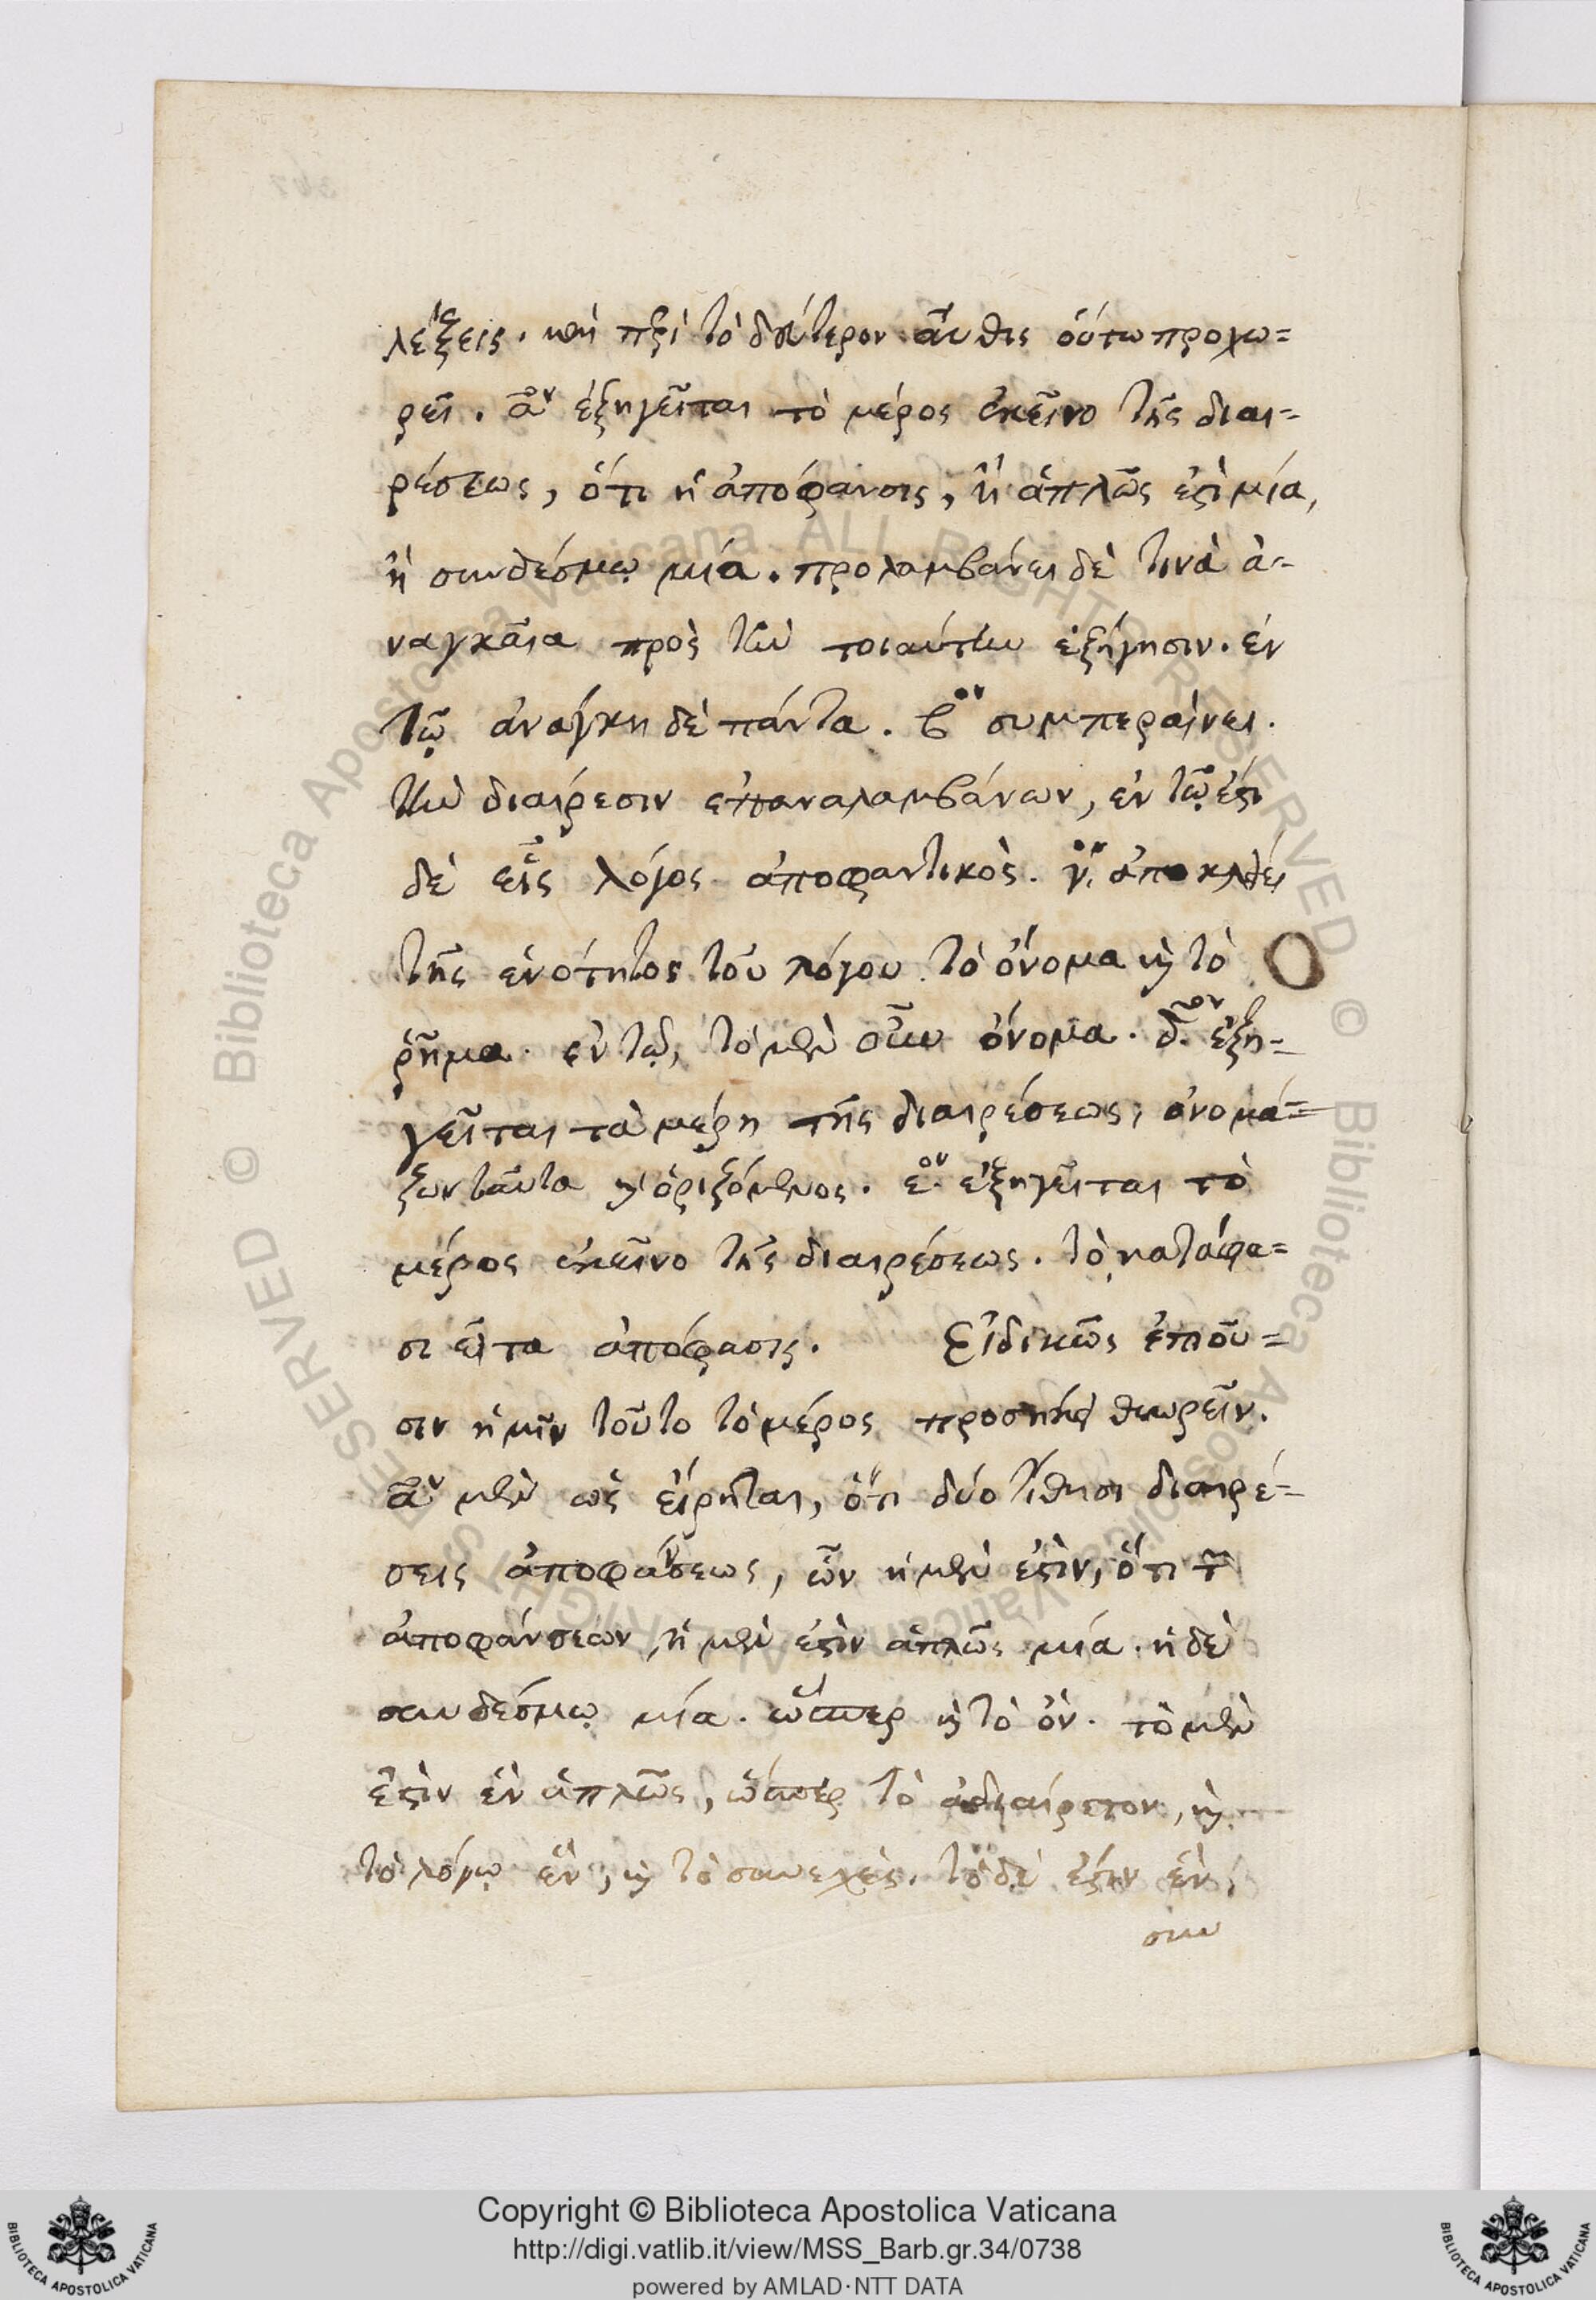 λέξεις. καὶ περὶ τὸ δεύτερον αὖθις οὕτω προχω=
ρεῖ. αον ἐξηγεῖται τὸ μέρος ἐκεῖνο τῆς διαι=
ρέσεως, ὅτι ἡ ἀπόφανσις, ἢ ἁπλῶς ἐστὶ μία,
ἢ συνδέσμῳ μία. προλαμβάνει δὲ τινὰ ἀ=
ναγκαῖα πρὸς τὴν τοιαύτην ἐξήγησιν. ἐν
τῷ ἀνάγκη δὲ πάντα. βον συμπεραίνει.
τὴν διαίρεσιν ἐπαναλαμβάνων, ἐν τῷ ἐστι
δὲ εἷς λόγος ἀποφαντικὸς. γον ἀποκλείει
τῆς ἑνότητος τοῦ λόγου τὸ ὄνομα καὶ τὸ
ῥῆμα. ἐν τῷ, τὸ μὲν οὖν ὄνομα. δον ἐξη=
γεῖται τὰ μέρη τῆς διαιρέσεως, ὀνομά=
ζων ταῦτα καὶ ὁριζόμενος. εον ἐξηγεῖται τὸ
μέρος ἐκεῖνο τῆς διαιρέσεως. τὸ κατάφα=
σι εἶτα ἀπόφασις. Εἰδικῶς ἐπιοῦ=
σιν ἡμῖν τοῦτο τὸ μέρος προσήκει θεωρεῖν.
αον μὲν ὡς εἴρηται, ὅτι δύο τίθησι διαιρέ=
σεις ἀποφάνσεως, ὧν ἡ μέν ἐστιν, ὅτι τῶν
ἀποφάνσεων, ἡ μέν ἐστιν ἁπλῶς μία. ἡ δὲ
συνδέσμῳ μία. ὥσπερ καὶ τὸ ὄν. τὸ μὲν
ἐστὶν ἓν ἁπλῶς, ὥσπερ τὸ ἀδιαίρετον, καὶ
τὸ λόγῳ ἕν, καὶ τὸ συνεχὲς. τὸ δέ ἐστιν ἓν,
συν
Copyright © Biblioteca Apostolica Vaticana
http://digi.vatlib.it/view/MSS_Barb.gr.34/0738
powered by AMLAD·NTT DATA